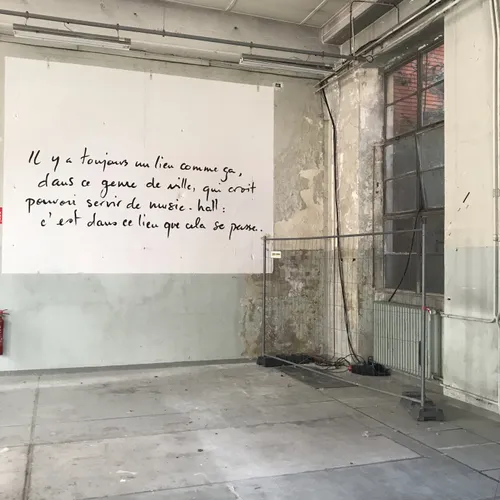 Il y a toujours un lieu comme ça,
dans ce genre de ville, qui croit
pouvoir servir de music-hall :
c'est dans ce lieu que cela se passe.